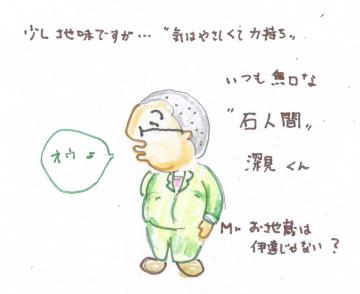 少し地味ですが…〝気はやさしくて力持ち〟
いつも無口な
〝石人間〟
深見くん
オウよ
Mr お地蔵は
伊達じゃない?